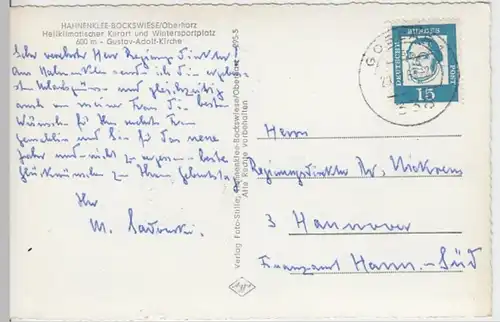 HAHNENKLEE-BOCKSWIESE/Oberharz
Heilklimatischer Kurort und Wintersportplatz
600 m - Gustav-Adolf-Kirche
Sehr verehrter Herr Regierungsdirektor
Aus Hahnenklee sende ich die
und gleichzeitig
auch von meiner Frau die besten
Wünsche für Ihre verehrte Frau
Gemahlin und Sie für das neue
Jahr und nicht zu vergessen beste
Glückwünsche zu Ihrem Geburtstag
Ihr
M.
Verlag Foto-Stille, Hahnenklee-Bockswiese/Oberharz
Alle Rechte vorbehalten
DEUTSCHE BUNDESPOST
15
Herrn
Regierungsdirektor Dr.
3 Hannover
Finanzamt Hann.-Süd
Agfa